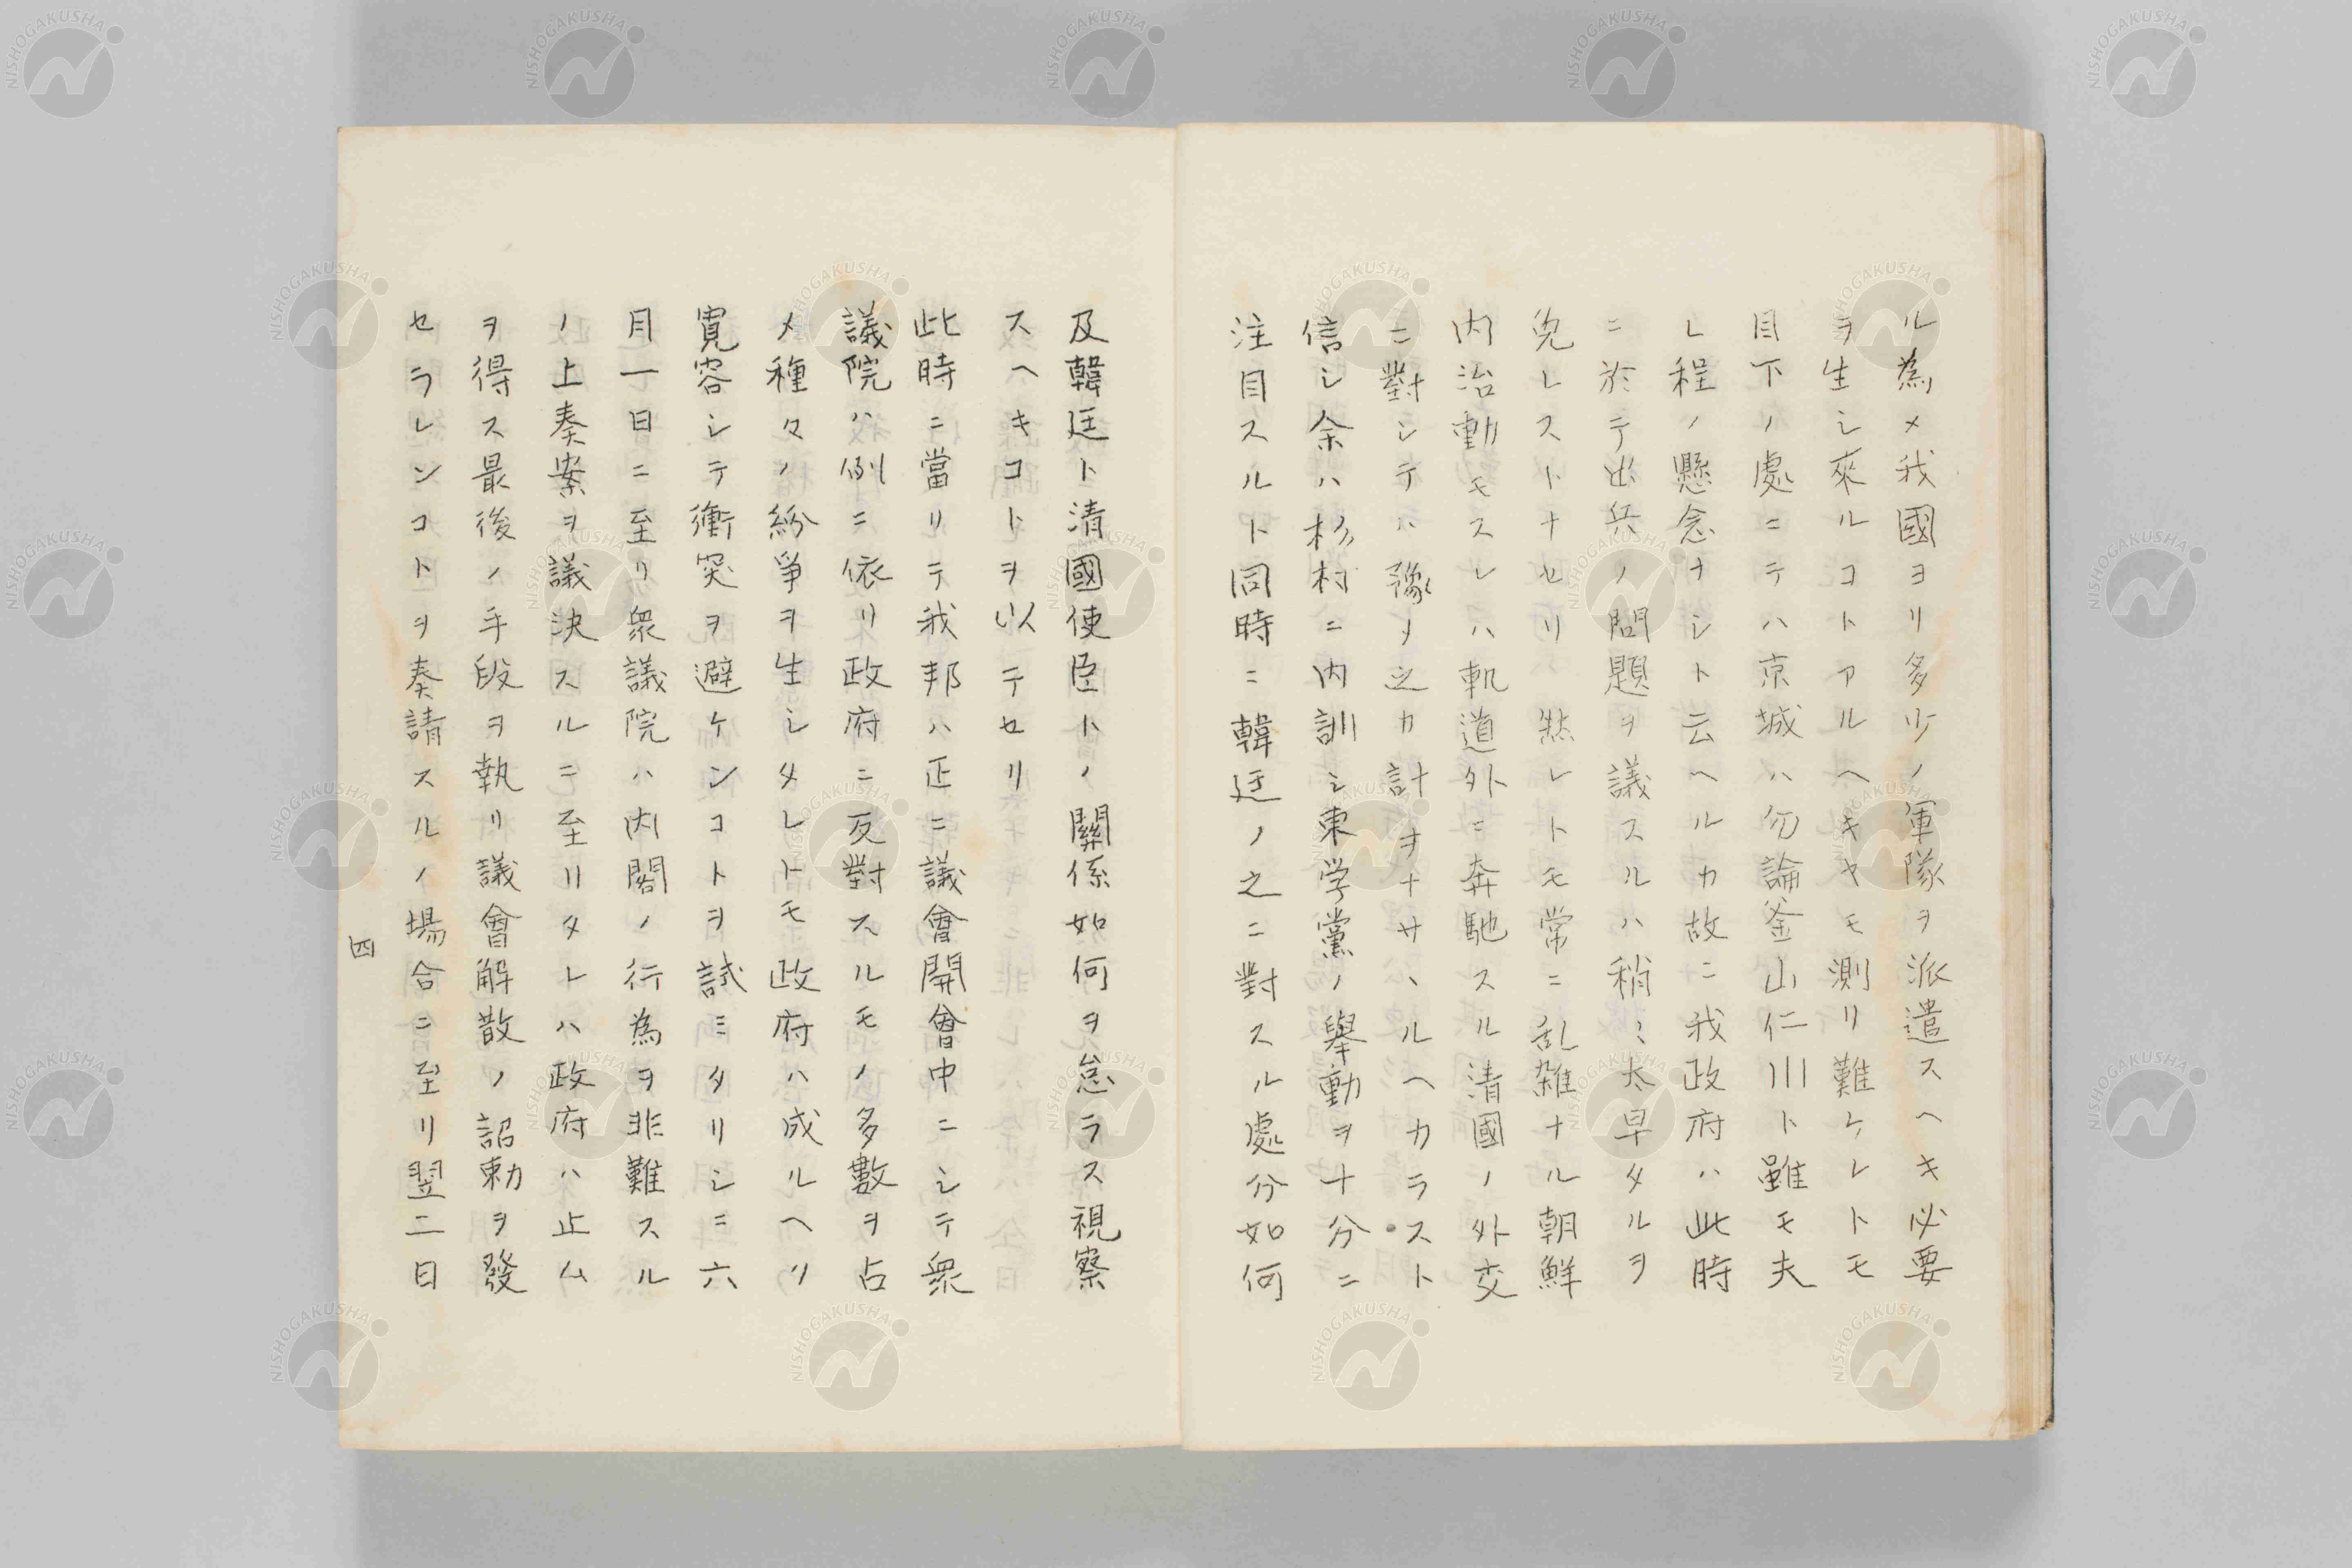 ル為メ我國ヨリ多少ノ軍隊ヲ派遣スヘキ必要
ヲ生シ來ルコトアルヘキヤモ測リ難ケレトモ
目下ノ處ニテハ京城ハ勿論釜山仁川ト雖モ夫
レ程ノ懸念ナシト云ヘルカ故ニ我政府ハ此時
ニ於テ出兵ノ問題ヲ議スルハ稍〻太早タルヲ
免レストナセリ然レトモ常ニ乱雑ナル朝鮮
内治動モスレハ軌道外ニ奔馳スル清國ノ外交
ニ對シテハ豫メ之カ計ヲナサヽルヘカラスト
信シ余ハ杉村ニ内訓シ東学黨ノ擧動ヲ十分ニ
注目スルト同時ニ韓廷ノ之ニ對スル處分如何
及韓廷ト清國使臣トノ關係如何ヲ怠ラス視察
スヘキコトヲ以テセリ
此時ニ當リテ我邦ハ正ニ議會開會中ニシテ衆
議院ハ例ニ依リ政府ニ反對スルモノ多數ヲ占
メ種々ノ紛爭ヲ生シタレトモ政府ハ成ルヘク
寛容シテ衝突ヲ避ケンコトヲ試ミタリシニ六
月一日ニ至リ衆議院ハ内閣ノ行為ヲ非難スル
ノ上奏案ヲ議決スルニ至リタレハ政府ハ止ム
ヲ得ス最後ノ手段ヲ執リ議會解散ノ詔勅ヲ發
セラレンコトヲ奏請スルノ場合ニ至リ翌二日
四
NISHOGAKUSHA